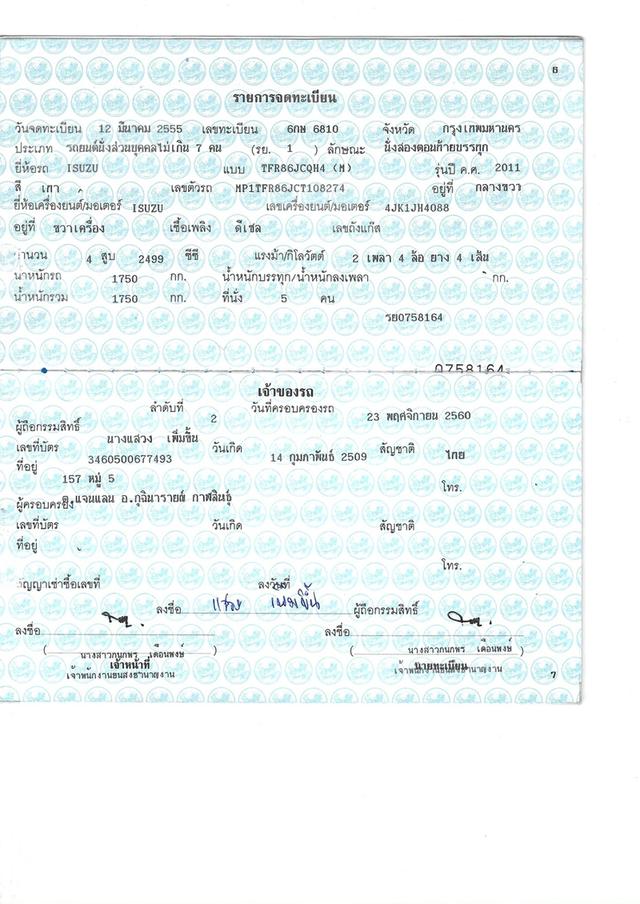 6
รายการจดทะเบียน
วันจดทะเบียน 12 มีนาคม 2555 เลขทะเบียน 6กษ 6810 จังหวัด กรุงเทพมหานคร
ประเภท รถยนต์นั่งส่วนบุคคลไม่เกิน 7 คน (รย. 1 ) ลักษณะ นั่งสองตอนท้ายบรรทุก
ยี่ห้อรถ ISUZU แบบ TFR86JCQH4 (M) รุ่นปี ค.ศ. 2011
สี เทา เลขตัวรถ MP1TFR86JCT108274 อยู่ที่ กลางขวา
ยี่ห้อเครื่องยนต์/มอเตอร์ ISUZU เลขเครื่องยนต์/มอเตอร์ 4JK1JH4088
อยู่ที่ ขวาเครื่อง เชื้อเพลิง ดีเซล เลขถังแก๊ส
จำนวน 4 สูบ 2499 ซีซี แรงม้า/กิโลวัตต์ 2 เพลา 4 ล้อ ยาง 4 เส้น
น้ำหนักรถ 1750 กก. น้ำหนักบรรทุก/น้ำหนักลงเพลา กก.
น้ำหนักรวม 1750 กก. ที่นั่ง 5 คน
รย0758164
0758164
เจ้าของรถ
ลำดับที่ 2 วันที่ครอบครองรถ 23 พฤศจิกายน 2560
ผู้ถือกรรมสิทธิ์ นางแสวง เพิ่มขึ้น
เลขที่บัตร 3460500677493 วันเกิด 14 กุมภาพันธ์ 2509 สัญชาติ ไทย
ที่อยู่ 157 หมู่ 5
โทร.
ต.แจนแลน อ.กุฉินารายณ์ กาฬสินธุ์
ผู้ครอบครอง
เลขที่บัตร วันเกิด สัญชาติ
ที่อยู่
โทร.
สัญญาเช่าซื้อเลขที่ ลงวันที่
ลงชื่อ แสวง เพิ่มขึ้น ผู้ถือกรรมสิทธิ์
ลงชื่อ ลงชื่อ
( นางสาวกนกพร เดือนพงษ์ ) ( นางสาวกนกพร เดือนพงษ์ )
เจ้าหน้าที่ นายทะเบียน
เจ้าพนักงานขนส่งชำนาญงาน เจ้าพนักงานขนส่งชำนาญงาน
7